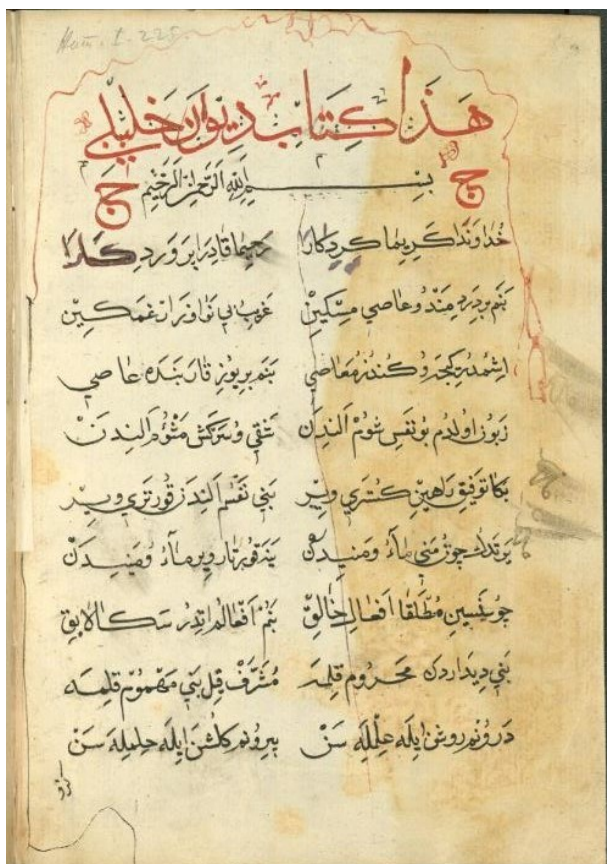 هَذَا كِتَابِ دِيوَانِ خَلِيلِي
بِسْمِ اللهِ الرَّحْمَنِ الرَّحِيمِ
خداوندا كريما كردكارا رحيما قادرا پروردكارا
بنم بر دردمند و عاصي مسكين غريب بي نوا
اشمدر كيجه و كندز معاصي بنم بر يوز قاره بنده عاصي
زبون اولدم بو نفس شوم الندن شقي و سركش الندن
بكا توفيق راهين كستري وير بني نفسم الندن قورتري وير
يرتدك چون مني ماء ومنيدن ينه ماء ومنيدن
چو سنسين مطلقا افعال خالق بنم افعالم اتدر سكا لايق
بني ديداردن محروم قلمه مشرف قل بني مهموم قلمه
درونم روشن ايله علمله سن بيرونم كلشن ايله حلمله سن